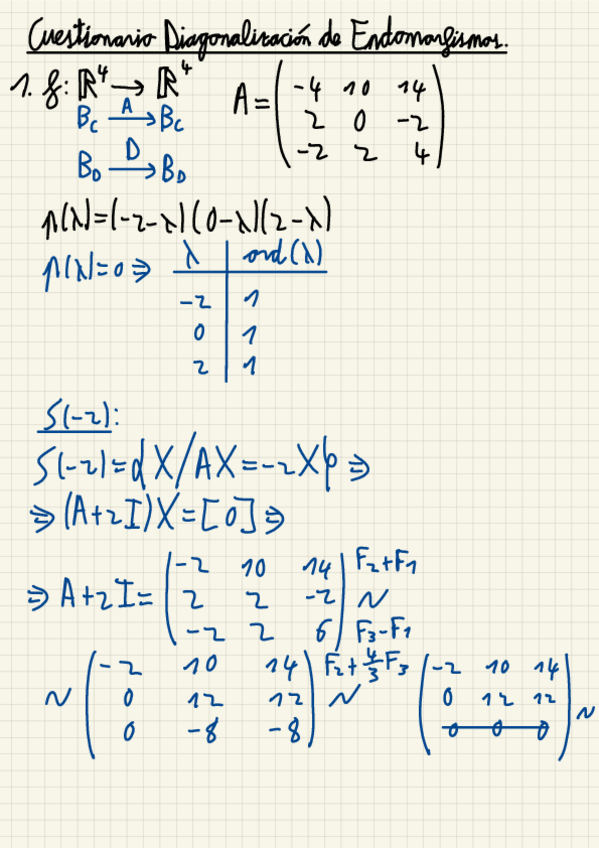 Cuestionario Diagonalización de Endomorfismos.
1. f: ℝ⁴ → ℝ⁴
B_C —A→ B_C
B_D —D→ B_D
A = (-4 10 14
2 0 -2
-2 2 4)
p(λ)=(-2-λ)(0-λ)(2-λ)
p(λ)=0 ⇒ λ | ord(λ)
-2 | 1
0 | 1
2 | 1
S(-2):
S(-2)={X/AX=-2X} ⇒
⇒ (A+2I)X=[0] ⇒
⇒ A+2I = (-2 10 14
2 2 -2
-2 2 6) F₂+F₁ ~ F₃-F₁
~ (-2 10 14
0 12 12
0 -8 -8) F₂+4/3F₃ ~
(-2 10 14
0 12 12
0 0 0) ~